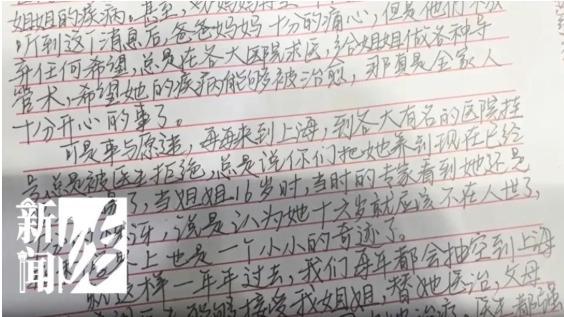 姐姐的疾病。甚至,
听到这个消息后,爸爸妈妈十分的痛心,但是他们不放
弃任何希望,总是在各大医院求医,给姐姐做各种导
管术,希望她的疾病能够被治愈,那真是全家人
十分开心的事了。
可是事与原违,再再来到上海,到各大有名的医院挂
号总是被医生拒绝,总是说你们把她养到现在已经
了,当姐姐16岁时,当时的专家看到她还是
讶,说是认为她十六岁就应该不在人世了,
上也是一个小小的奇迹了。
就这样一年年过去,我们每年都会抽空到上海
能够接受我姐姐,替她医治,父母
治疗,医生都强
新闻